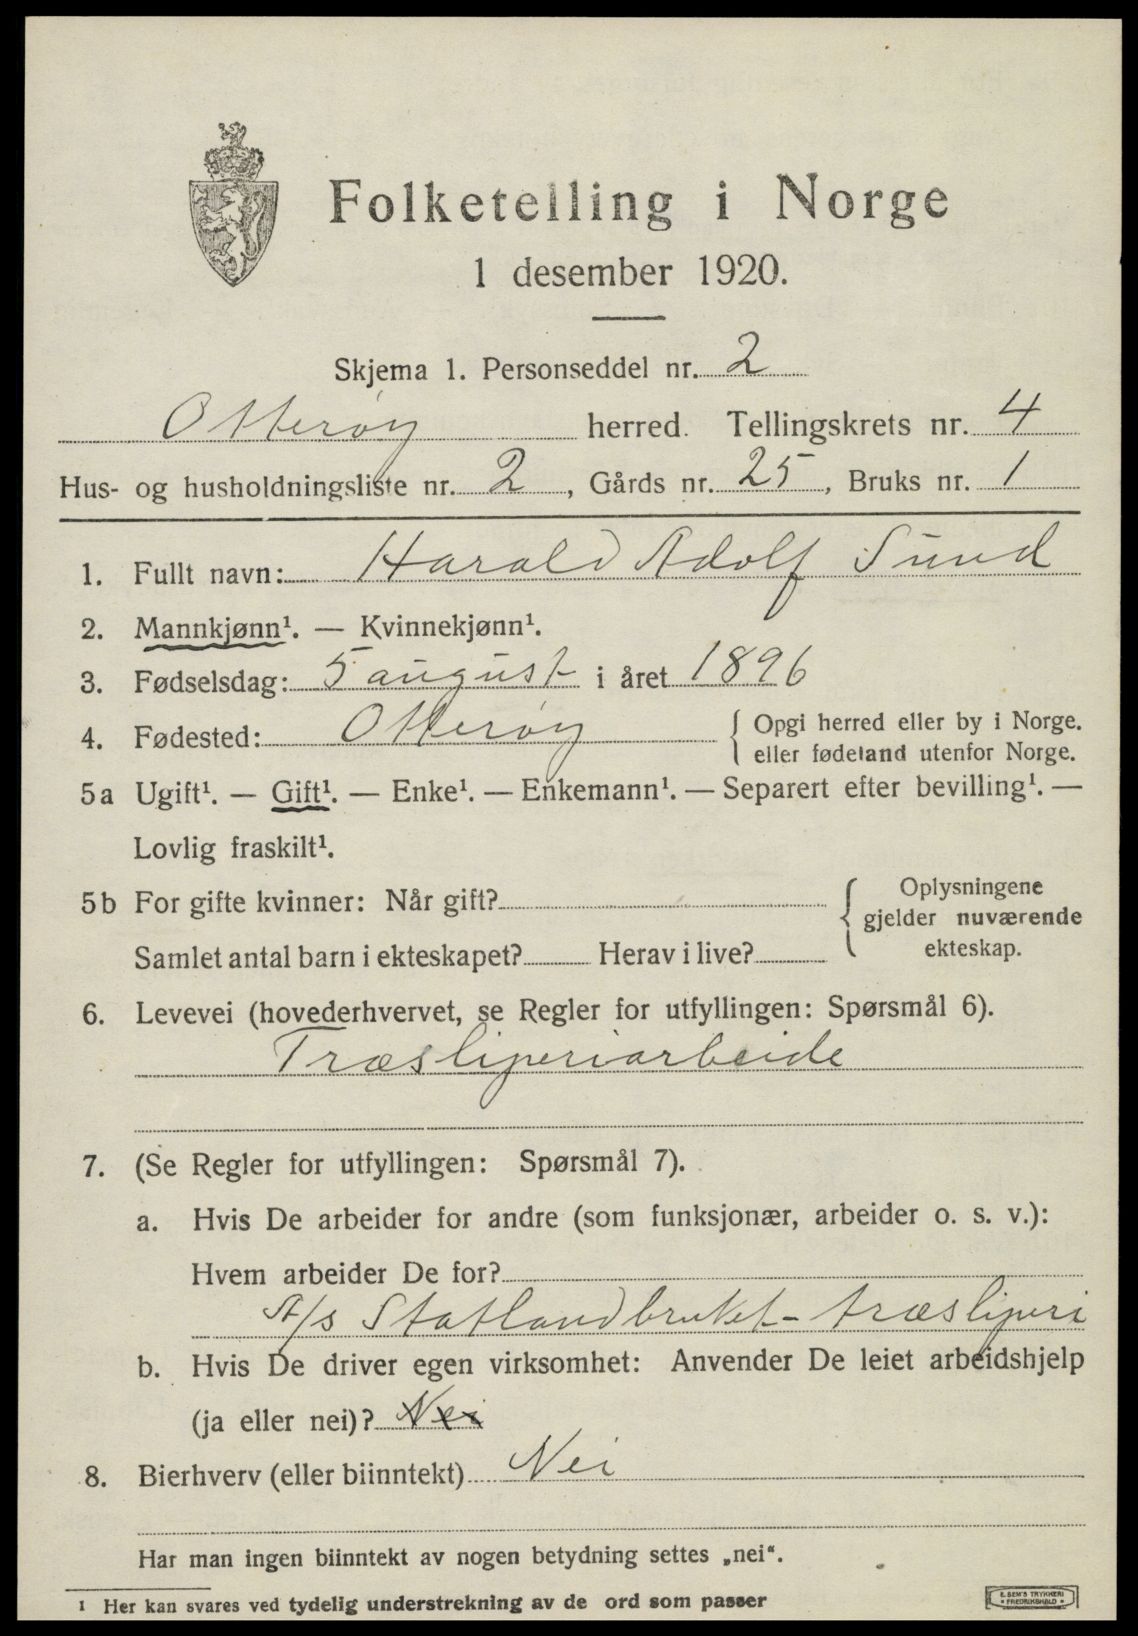 Folketelling i Norge
1 desember 1920.
Skjema 1. Personseddel nr. 2
Otterøy herred. Tellingskrets nr. 4
Hus- og husholdningsliste nr. 2, Gårds nr. 25, Bruks nr. 1
1. Fullt navn: Harald Adolf Sund
2. Mannkjønn¹. — Kvinnekjønn¹.
3. Fødselsdag: 5 august i året 1896
4. Fødested: Otterøy { Opgi herred eller by i Norge.
eller fødeland utenfor Norge.
5a Ugift¹. — Gift¹. — Enke¹. — Enkemann¹. — Separert efter bevilling¹. —
Lovlig fraskilt¹.
5b For gifte kvinner: Når gift? { Oplysningene
gjelder nuværende
ekteskap.
Samlet antal barn i ekteskapet? Herav i live?
6. Levevei (hovederhvervet, se Regler for utfyllingen: Spørsmål 6).
Træsliperiarbeide
7. (Se Regler for utfyllingen: Spørsmål 7).
a. Hvis De arbeider for andre (som funksjonær, arbeider o. s. v.):
Hvem arbeider De for?
A/s Statlandbruket - træsliperi
b. Hvis De driver egen virksomhet: Anvender De leiet arbeidshjelp
(ja eller nei)? Nei
8. Bierhverv (eller biinntekt) Nei
Har man ingen biinntekt av nogen betydning settes „nei".
1 Her kan svares ved tydelig understrekning av de ord som passer
E. SEM'S TRYKKERI
• FREDRIKSHALD •